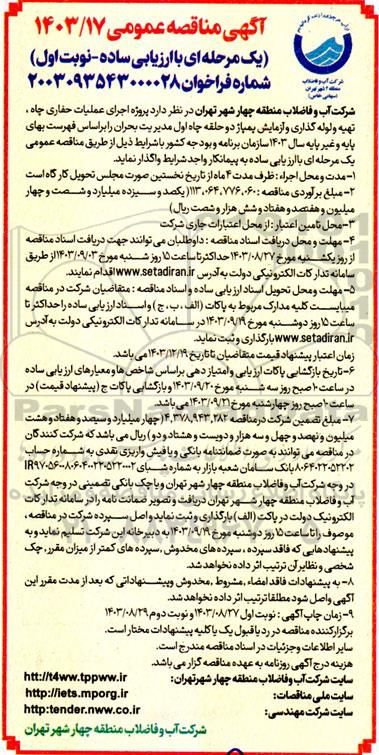 آگهی مناقصه عمومی ۱۴۰۳/۱۷
(یک مرحله ای با ارزیابی ساده-نوبت اول)
شماره فراخوان ۲۰۰۳۰۹۳۵۴۳۰۰۰۰۲۸
شرکت آب و فاضلاب
منطقه ۴ شهر تهران
(سهامی خاص)
شرکت آب و فاضلاب منطقه چهار شهر تهران در نظر دارد پروژه اجرای عملیات حفاری چاه ،
تهیه و لوله گذاری و آزمایش پمپاژ دو حلقه چاه اول مدیریت بحران را براساس فهرست بهای
پایه و غیر پایه سال ۱۴۰۳ سازمان برنامه و بودجه کشور با شرایط ذیل از طریق مناقصه عمومی
یک مرحله ای با ارزیابی ساده به پیمانکار واجد شرایط واگذار نماید.
۱-مدت و محل اجراء : ظرف مدت ۴ ماه از تاریخ نخستین صورت مجلس تحویل کارگاه است
۲- مبلغ برآوردی مناقصه : ۱۱۳،۰۶۴،۷۷۶،۰۶۰( یکصد و سیزده میلیارد و شصت و چهار
میلیون و هفتصد و هفتاد و شش هزار و شصت ریال)
۳-محل تامین اعتبار : از محل اعتبارات جاری شرکت
۴- مهلت و محل دریافت اسناد مناقصه : داوطلبان می توانند جهت دریافت اسناد مناقصه
از روز یکشنبه مورخ ۱۴۰۳/۰۸/۲۷ حداکثر تا ساعت ۱۵ روز شنبه مورخ ۱۴۰۳/۰۹/۰۳ از طریق
سامانه تدارکات الکترونیکی دولت به آدرس www.setadiran.ir اقدام نمایند.
۵- مهلت و محل تحویل اسناد ارزیابی ساده و اسناد مناقصه : متقاضیان شرکت در مناقصه
میبایست کلیه مدارک مربوط به پاکات (الف ، ب ، ج ) و اسناد ارزیابی ساده را حداکثر تا
ساعت ۱۵ روز دوشنبه مورخ ۱۴۰۳/۰۹/۱۹ در سامانه تدارکات الکترونیکی دولت به آدرس
www.setadiran.ir بارگذاری و ثبت نماید.
زمان اعتبار پیشنهاد قیمت متقاضیان تا تاریخ ۱۴۰۳/۱۲/۱۹ می باشد.
۶-تاریخ بازگشائی پاکات ارزیابی و امتیاز دهی براساس شاخص ها و معیارهای ارزیابی ساده
در ساعت ۱۰ صبح روز سه شنبه مورخ ۱۴۰۳/۰۹/۲۰ و بازگشایی پاکات ج (پیشنهاد قیمت) در
ساعت ۱۰ صبح روز چهارشنبه مورخ ۱۴۰۳/۰۹/۲۱ می باشد.
۷- مبلغ تضمین شرکت در مناقصه ۴،۳۷۸،۹۴۳،۲۸۲ (چهار میلیارد و سیصد و هفتاد و هشت
میلیون و نهصد و چهل و سه هزار و دویست و هشتاد و دو) ریال می باشد که شرکت کنندگان
در مناقصه می توانند به صورت ضمانتنامه بانکی و یا فیش واریزی نقدی به شماره حساب
۸۰۶۴۰۲۲۰۵۲۲۰۲ بانک سامان شعبه بازار به شماره شبای
در وجه شرکت آب و فاضلاب منطقه چهار شهر تهران و یا چک بانکی تضمینی در وجه شرکت
آب و فاضلاب منطقه چهار شهر تهران دریافت و تصویر ضمانت نامه را در سامانه تدارکات
الکترونیک دولت در پاکت (الف) بارگذاری و ثبت نماید و اصل سپرده شرکت در مناقصه ،
موصوف را تا ساعت ۱۵ روز دوشنبه مورخ ۱۴۰۳/۰۹/۱۹ به دبیرخانه این شرکت تسلیم نماید و به
پیشنهادهایی که فاقد سپرده ، سپرده های مخدوش ،سپرده های کمتر از میزان مقرر، چک
شخصی و نظایر آن ترتیب اثر داده نخواهد شد.
۸- به پیشنهادات فاقد امضاء ،مشروط ،مخدوش و پیشنهاداتی که بعد از مدت مقرر این
آگهی واصل شود مطلقا ترتیب اثر داده نخواهد شد.
۹- زمان چاپ آگهی : نوبت اول ۱۴۰۳/۰۸/۲۷ و نوبت دوم ۱۴۰۳/۰۸/۲۹
برگزارکننده مناقصه در رد یا قبول یک یا کلیه پیشنهادات مختار است.
سایر اطلاعات و جزئیات در اسناد مناقصه مندرج است.
هزینه درج آگهی روزنامه به عهده مناقصه گزار می باشد.
سایت شرکت آب و فاضلاب منطقه چهار شهر تهران: htt://t4ww.tppww.ir
سایت ملی مناقصات: http://iets.mporg.ir
سایت شرکت مهندسی: http:tender.nww.co.ir
شرکت آب و فاضلاب منطقه چهار شهر تهران